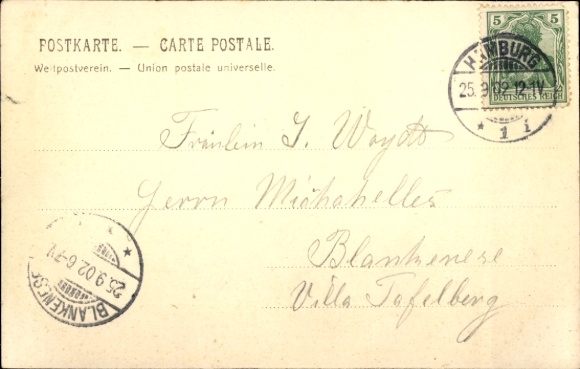 POSTKARTE. — CARTE POSTALE.
Weltpostverein. — Union postale universelle.
5 5
DEUTSCHES REICH
HAMBURG
25.9.02.12-1V.
* 1 i
Fräulein J. Woydt
Herrn Michahelles
Blankenese
Villa Tafelberg
BLANKENESE
25.9.02.6-7V.
* *